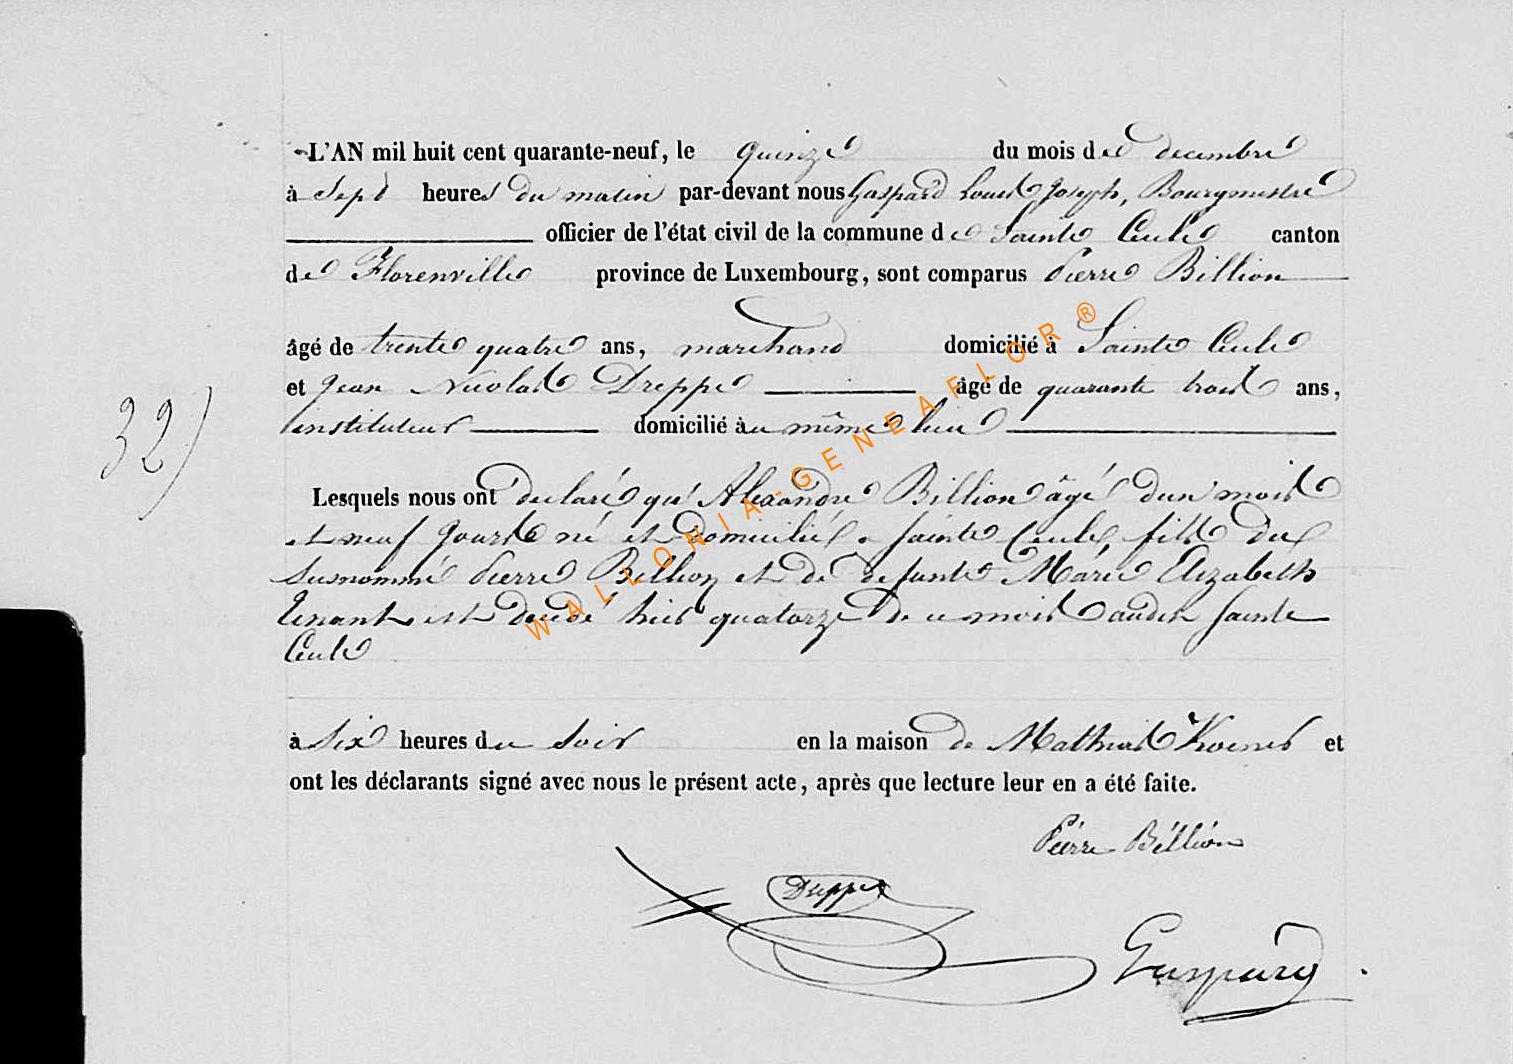 L'AN mil huit cent quarante-neuf, le quinze du mois de decembre
à sept heures du matin par-devant nous Gaspard Louis Joseph, Bourgmestre
officier de l'état civil de la commune de Sainte Cecile canton
de Florenville province de Luxembourg, sont comparus Pierre Billion
âgé de trente quatre ans, marchand domicilié à Sainte Cecile
et Jean Nicolas Dreppe âgé de quarante trois ans,
instituteur domicilié au même lieu
32)
Lesquels nous ont declaré qu'Alexandre Billion âgé d'un mois
et neuf jours né et domicilié à Sainte Cecile, fils du
susnommé Pierre Billion et de defunte Marie Elizabeth
est decedé hier quatorze de ce mois audit Sainte
Cecile
à six heures du soir en la maison de Mathias et
ont les déclarants signé avec nous le présent acte, après que lecture leur en a été faite.
Pierre Billion
Dreppe
Gaspard
WALLONIA-GENEAFLOR®